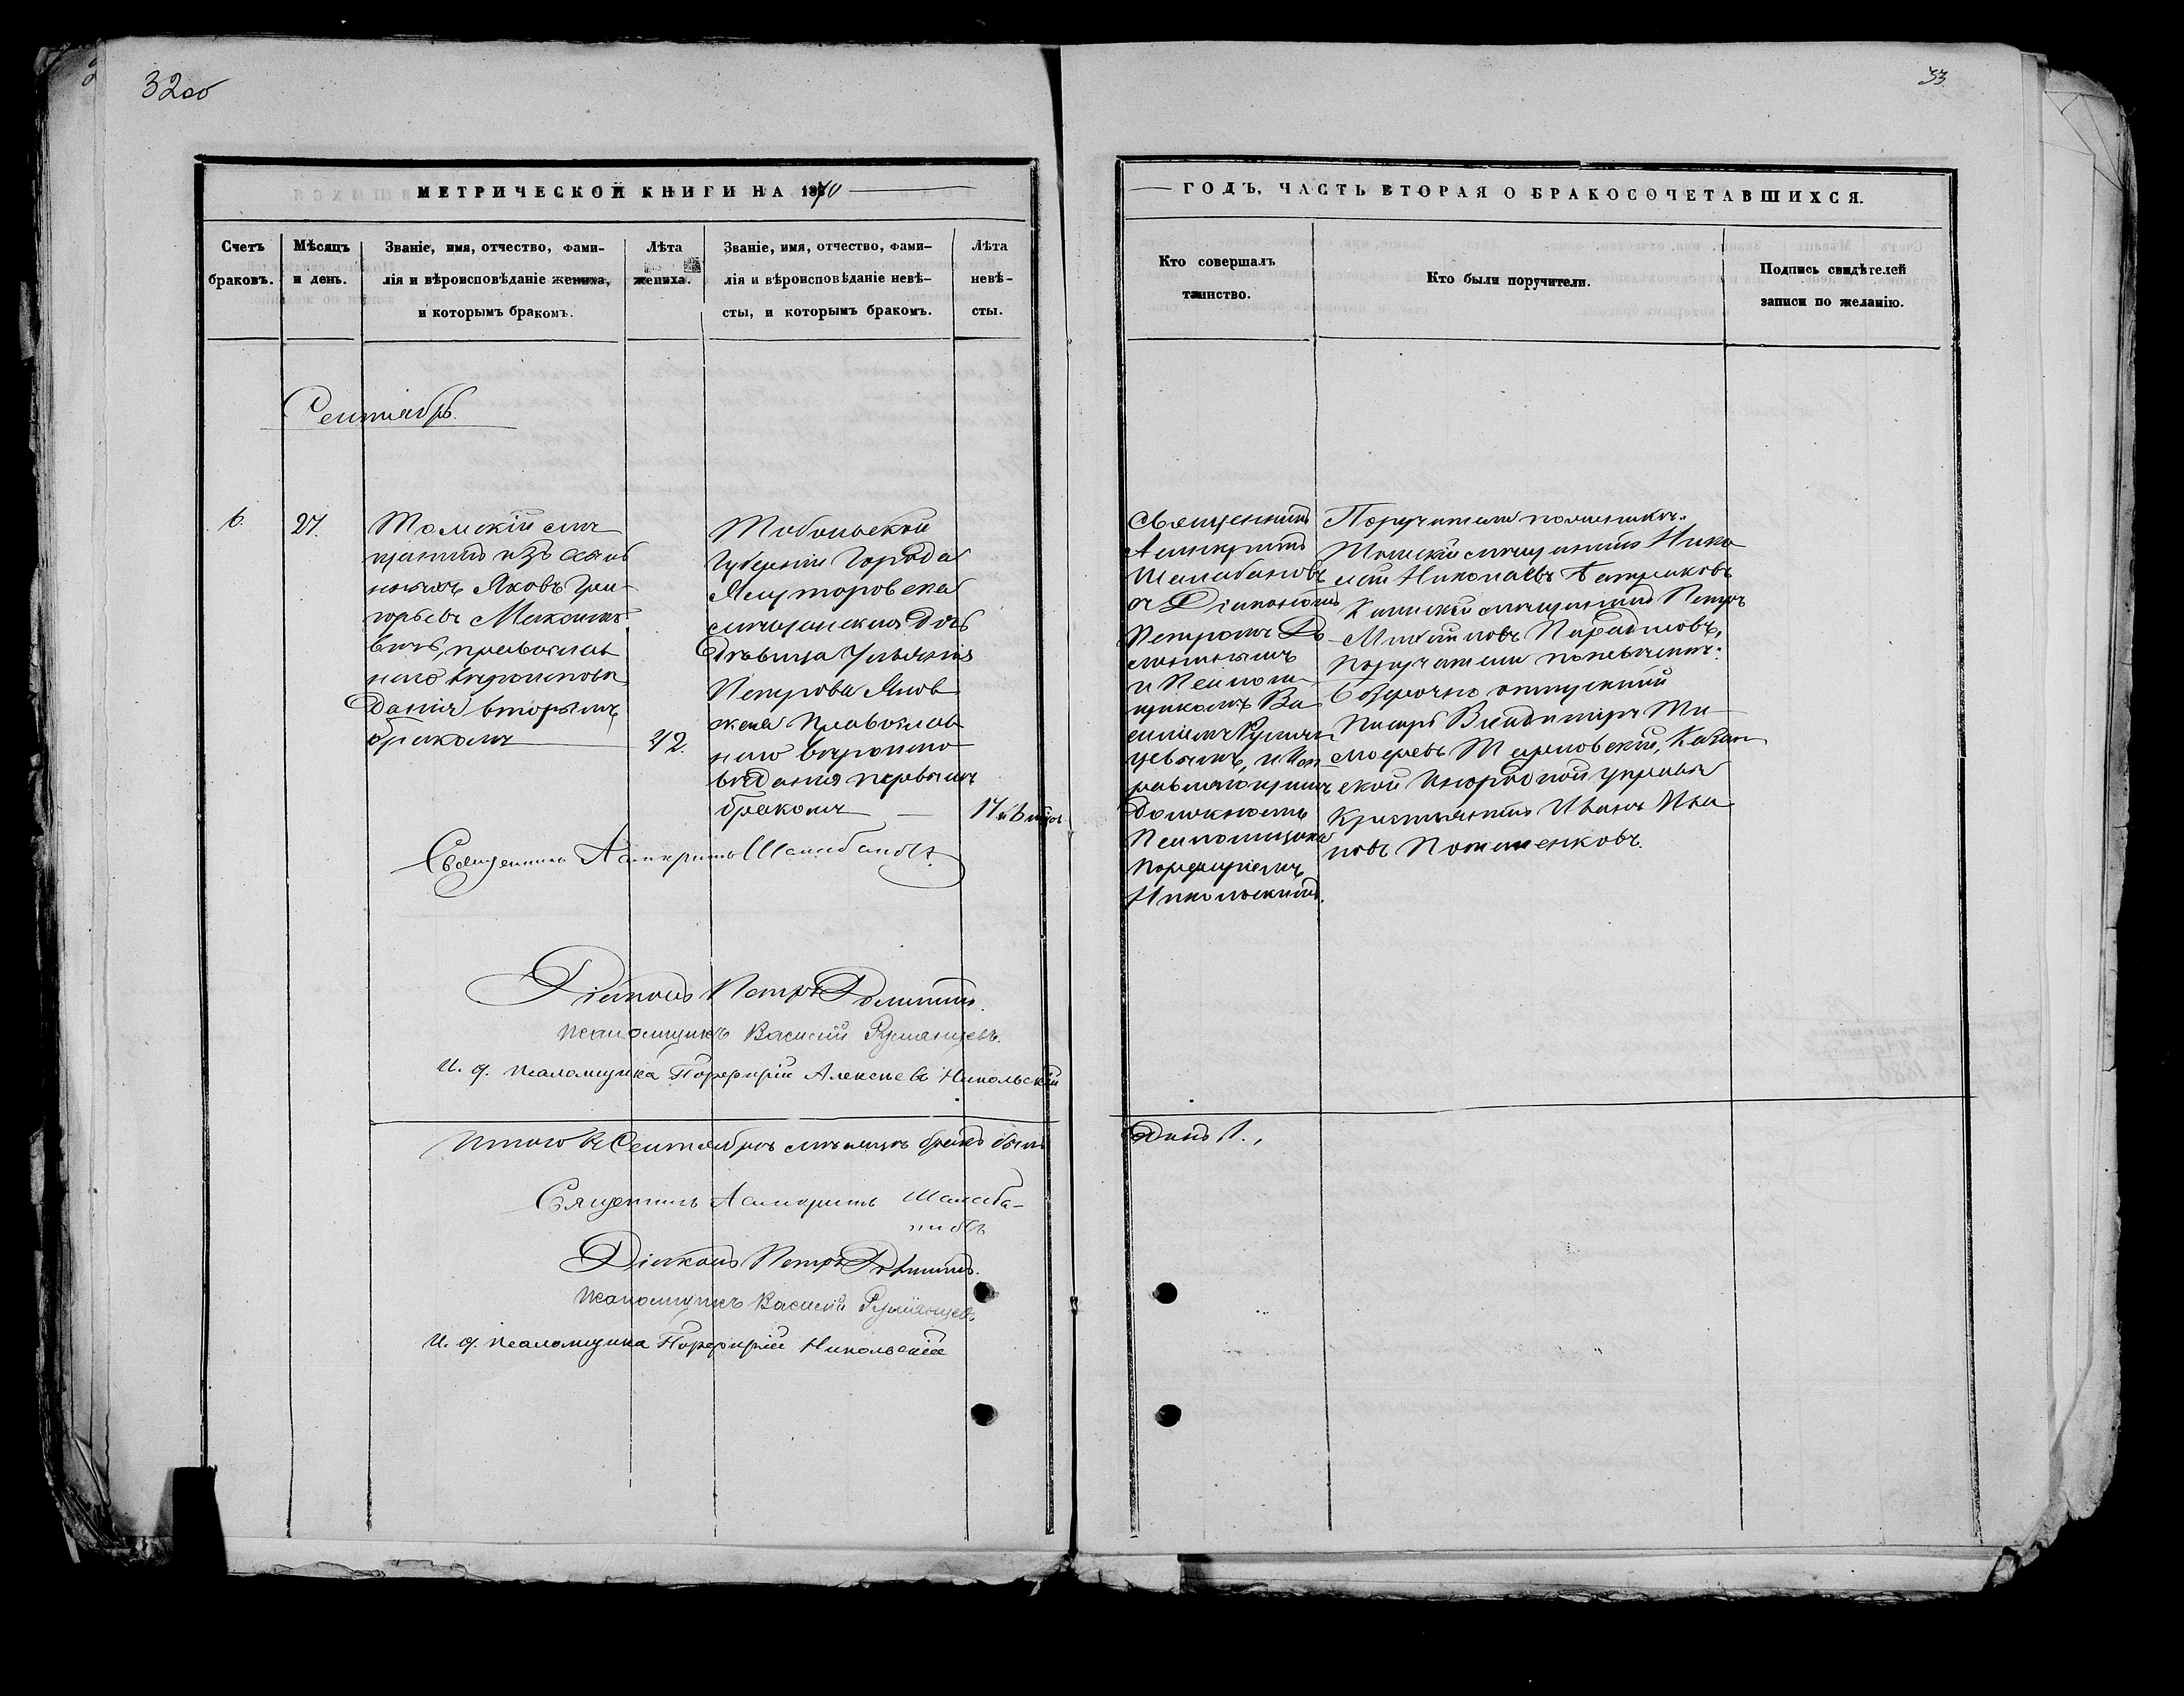 32об
33
МЕТРИЧЕСКОЙ КНИГИ НА 1870
ГОДЪ, ЧАСТЬ ВТОРАЯ О БРАКОСОЧЕТАВШИХСЯ.
Счетъ
браковъ.
Мѣсяцъ
и день.
Званіе, имя, отчество, фами-
лія и вѣроисповѣданіе жениха,
и которымъ бракомъ.
Лѣта
жениха.
Званіе, имя, отчество, фами-
лія и вѣроисповѣданіе невѣ-
сты, и которымъ бракомъ.
Лѣта
невѣ-
сты.
Кто совершалъ
таинство.
Кто были поручители.
Подпись свидѣтелей
записи по желанію.
Сентябрь.
6.
27.
Томскій мѣ-
щанинъ изъ
Яковъ Гри-
горьевъ
православ
наго вѣроисповѣ
данія вторымъ
бракомъ
42.
Тобольской
Губерніи Города
Ялуторовска
мѣщанская дочь
дѣвица Ульянія
Петрова Янов
ская Православ
наго вѣроиспо
вѣданія первымъ
бракомъ
17
Священникъ
Асинкритъ
Шалабановъ
съ Діакономъ
Петромъ До
и Псаломщ-
щикомъ Ва
силіемъ Румян
цевымъ, и
должность
Псаломщика
Порфиріемъ
Никольскимъ.
Поручители по женихѣ:
Томскій мѣщанинъ Нико
лай Николаевъ
мѣщанинъ Петръ
поручители по невѣстѣ:
безсрочно отпускной
Писарь Владиміръ Ти
мофеевъ
ской Инородной управы
Крестьянинъ Иванъ Ива
новъ
Священникъ Асинкритъ Шалабановъ.
Діаконъ Петръ
Псаломщикъ Василій Румянцевъ.
И. д. псаломщика Порфирій Алексѣевъ Никольскій
Итого въ Сентябрѣ мѣсяцѣ бракъ былъ
одинъ 1.
Священникъ Асинкритъ Шалаба-
новъ
Діаконъ Петръ
Псаломщикъ Василій Румянцевъ
И. д. псаломщика Порфирій Никольскій